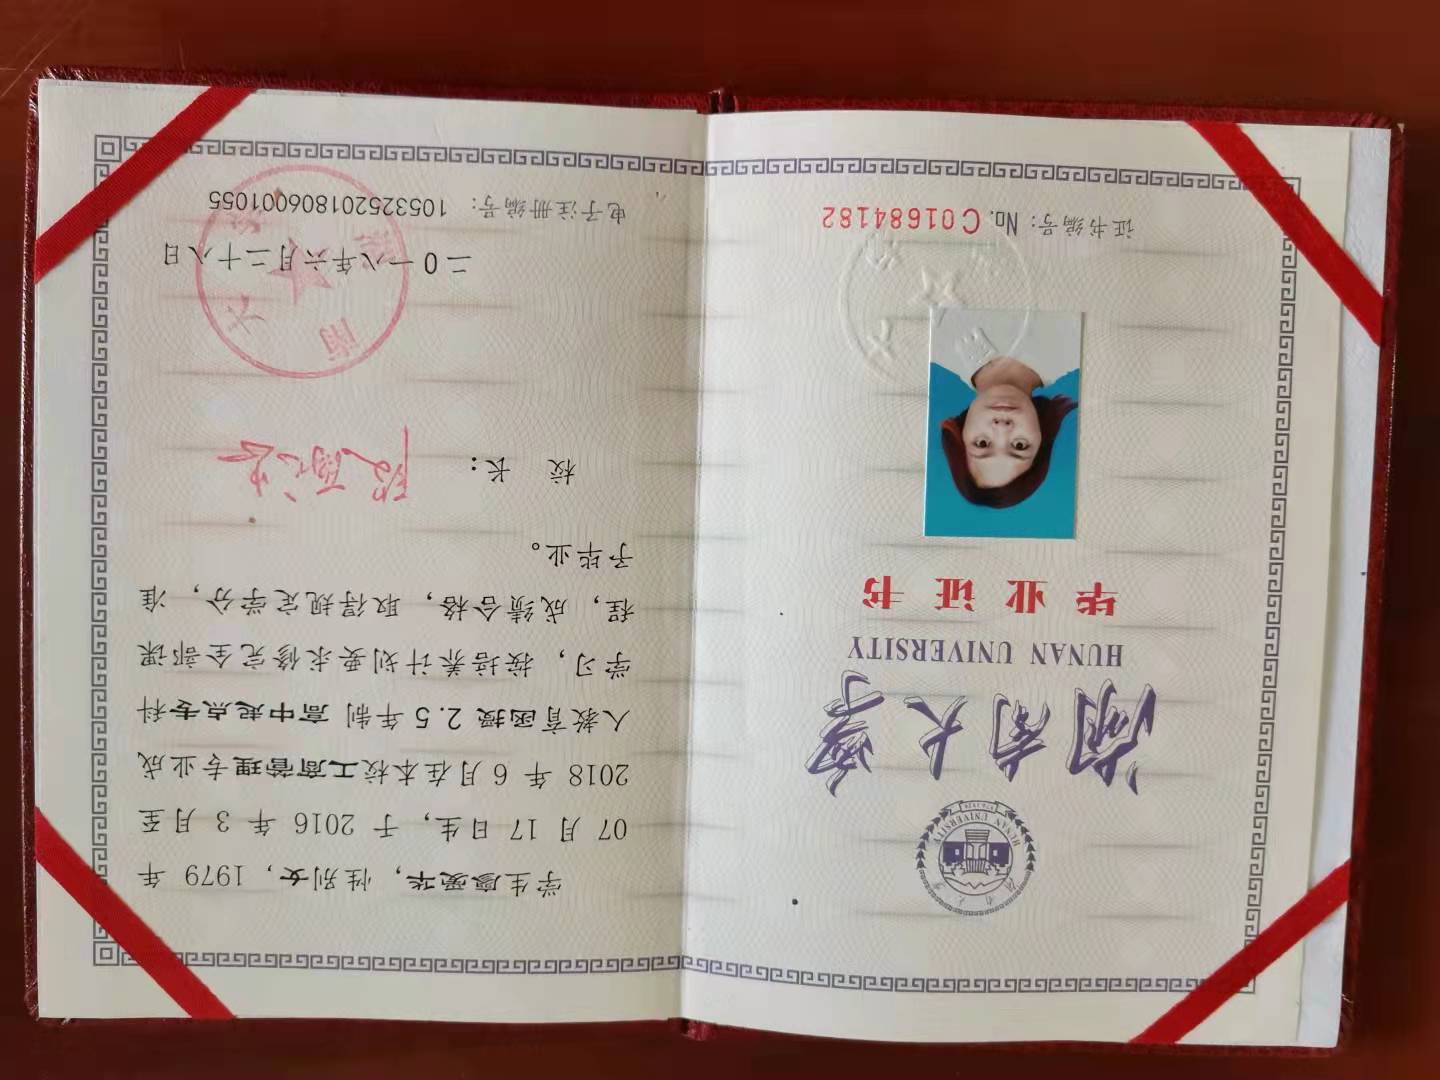 湖南大学
HUNAN UNIVERSITY
湖南大学
HUNAN UNIVERSITY
毕业证书
证书编号: No. C01684182
学生廖爱华, 性别女, 1979 年
07 月 17 日生, 于 2016 年 3 月至
2018 年 6 月在本校工商管理专业成
人教育函授 2.5 年制 高中起点专科
学习, 按培养计划要求修完全部课
程, 成绩合格, 取得规定学分, 准
予毕业。
校 长: 段献忠
二〇一八年六月二十八日
电子注册编号: 105325201806001055